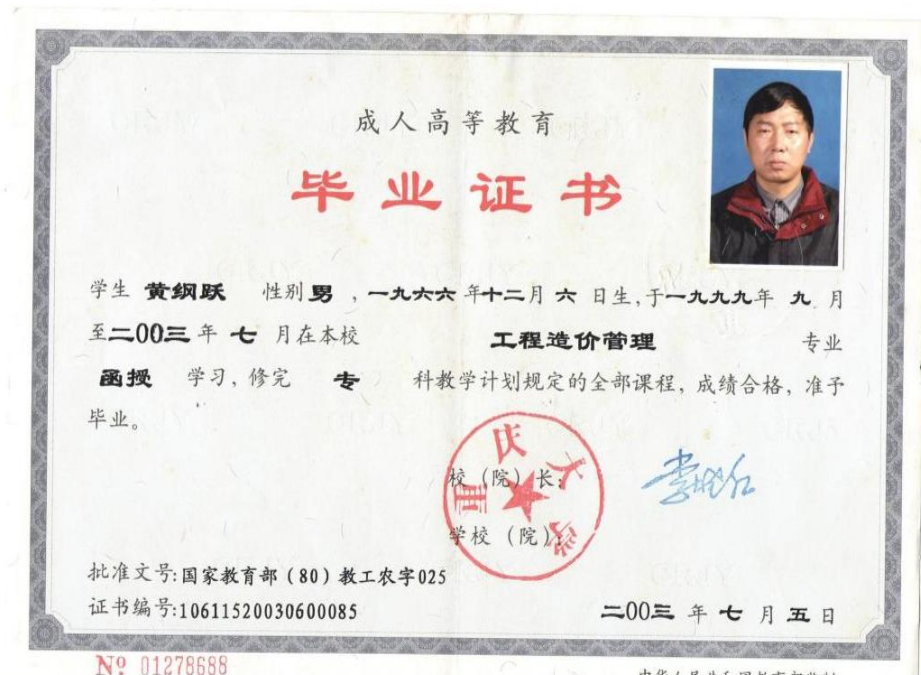 成人高等教育
毕业证书
学生 黄纲跃 性别 男 , 一九六六 年 十二 月 六 日生, 于 一九九九 年 九 月
至 二00三 年 七 月在本校 工程造价管理 专业
函授 学习, 修完 专 科教学计划规定的全部课程, 成绩合格, 准予
毕业。
重庆大学
校 (院) 长:
学校 (院):
批准文号:国家教育部(80)教工农字025
证书编号:10611520030600085
二00三 年 七 月 五 日
№ 01278688